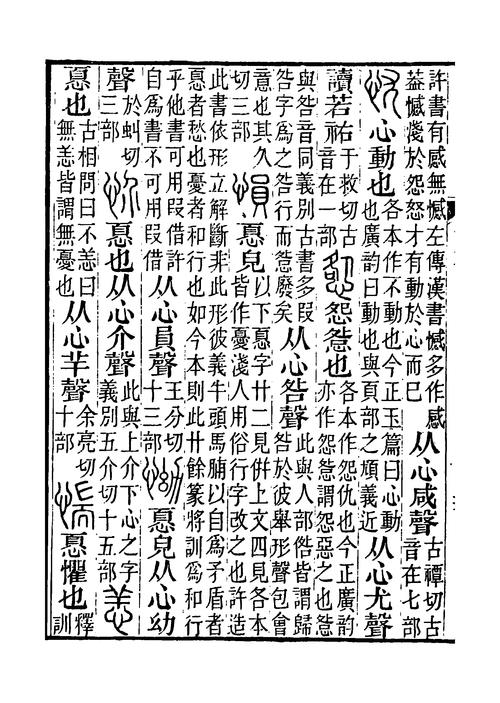 許書有感無憾左傳漢書憾多作感葢憾淺於怨怒才有動於心而已从心咸聲古禫切古音在七部
忧心動也各本作不動也今正玉篇曰心動也廣韵曰動也與頁部之頄義近从心尤聲
讀若祐于救切古音在一部㤹怨㤹也各本作怨仇也今正廣韵亦作怨㤹謂怨惡之也㤹
與咎音同義別古書多叚咎字爲之咎行而㤹廢矣从心咎聲此與人部㑻皆謂歸咎於彼舉形聲包會
意也其久切三部愪㥑皃以下㥑字廿二見倂上文四見各本皆作憂淺人用俗行字改之也許造
此書依形立解斷非此形彼義牛頭馬脯以自爲矛盾者㥑者愁也憂者和行也如今本則此廿餘篆將訓爲和行
乎他書可用叚借許自爲書不可用叚借从心員聲王分切十三部怮㥑皃从心幼
聲於虯切三部忦㥑也从心介聲此與上介下心之字義別五介切十五部恙
㥑也古相問曰不恙曰無恙皆謂無憂也从心羊聲余亮切十部惴㥑懼也釋訓